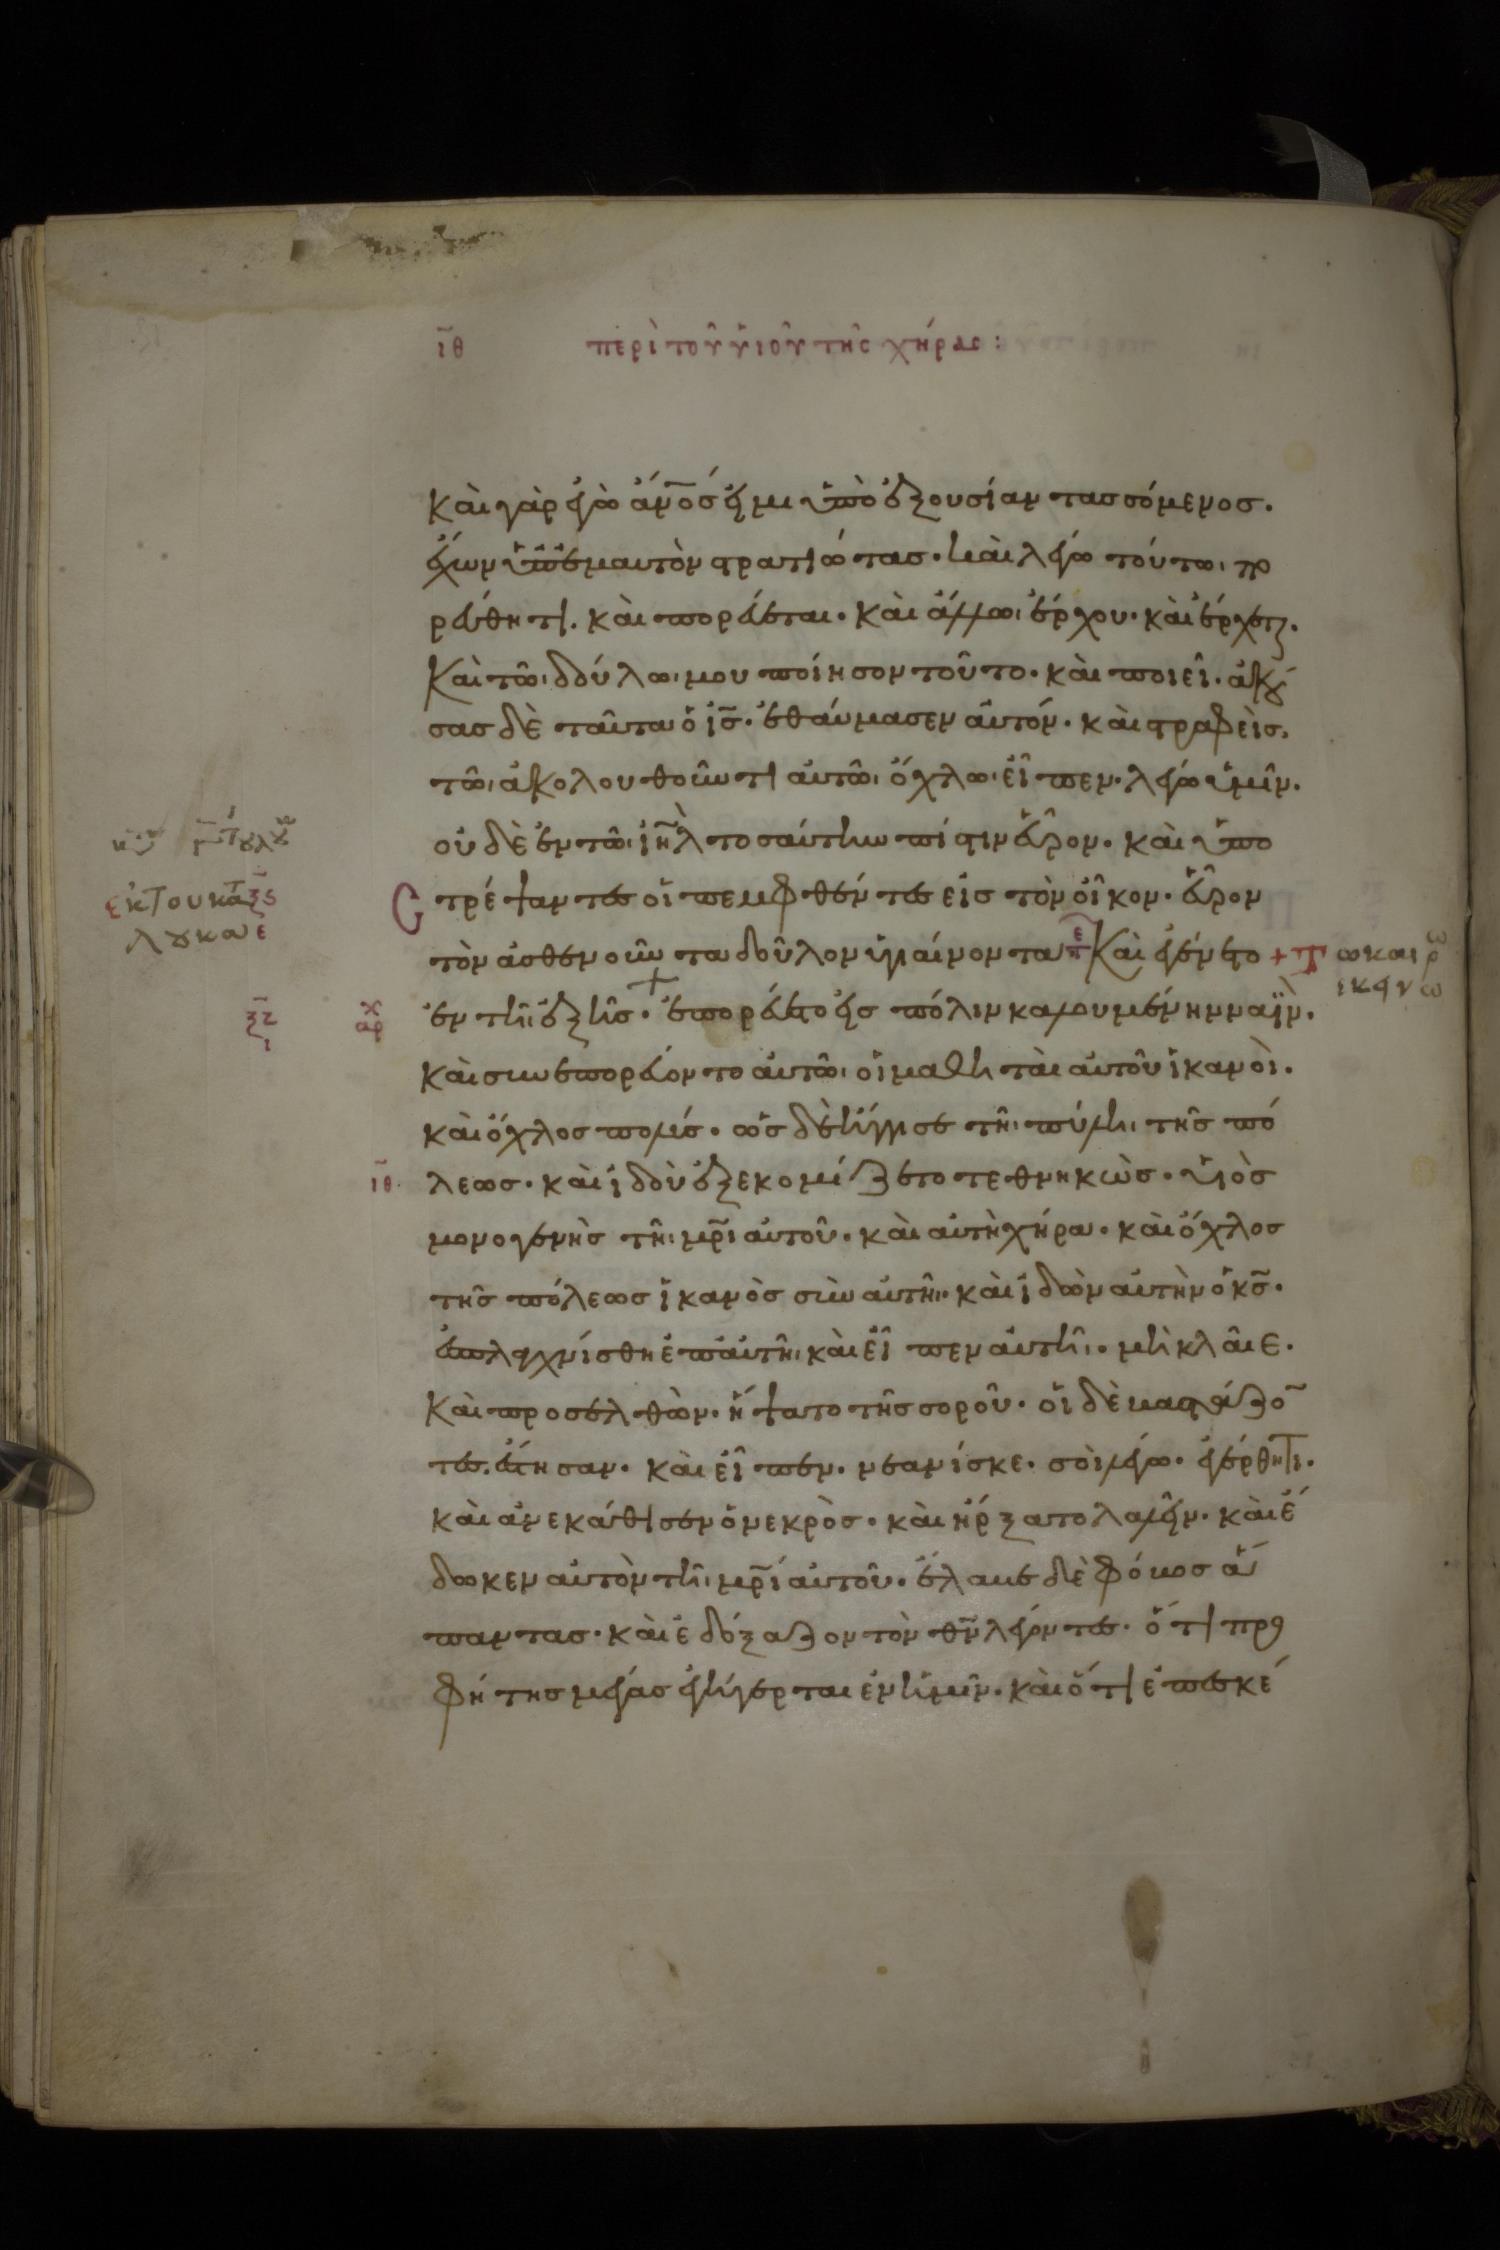 ιθ περὶ τοῦ υἱοῦ τῆς χήρας :
καὶ γὰρ ἐγὼ ἄν̅ο̅ς εἰμι ὑπὸ ἐξουσίαν τασσόμενος.
ἔχων ὑπ' ἐμαυτὸν στρατιώτας. καὶ λέγω τούτω, πο
ρεύθητι. καὶ πορεύεται. καὶ ἄλλω, ἔρχου. καὶ ἔρχεται.
καὶ τῶ, δούλω, μου ποίησον τοῦτο. καὶ ποιεῖ. ἀκού
σας δὲ ταῦτα ὁ ι̅ς̅. ἐθαύμασεν αὐτόν. καὶ στραφεὶς.
τῶ, ἀκολουθοῦντι αὐτῶ, ὄχλω, εἶπεν. λέγω ὑμῖν.
οὐδὲ ἐν τῶ, ι̅η̅λ̅ τοσαύτην πίστιν εὗρον. καὶ ὑπο
στρέψαντες οἱ πεμφθέντες εἰς τὸν οἶκον. εὗρον
τὸν ἀσθενοῦντα δοῦλον ὑγιαίνοντα Καὶ ἐγένετο + Τω καιρω
εκεινω
ἐν τῆ, ἑξῆς. ἐπορεύετο εἰς πόλιν καλουμένην ναΐν.
καὶ συνεπορεύοντο αὐτῶ, οἱ μαθηταὶ αὐτοῦ ἱκανοὶ.
καὶ ὄχλος πολύς. ὡς δὲ ἤγγισε τῆ, πύλη, τῆς πό
ιθ λεως. καὶ ἰδοὺ ἐξεκομίζετο τεθνηκὼς. υἱὸς
μονογενὴς τῆ, μ̅ρ̅ι αὐτοῦ. καὶ αὐτὴ χήρα. καὶ ὄχλος
τῆς πόλεως ἱκανὸς σὺν αὐτῆ,. καὶ ἰδὼν αὐτὴν ὁ κ̅ς̅.
ἐσπλαγχνίσθη ἐπ' αὐτῆ, καὶ εἶπεν αὐτῆ,. μὴ κλαῖε.
καὶ προσελθὼν. ἥψατο τῆς σοροῦ. οἱ δὲ βαστάζο̅
τες. ἔστησαν. καὶ εἶπεν. νεανίσκε. σοὶ λέγω. ἐγέρθητι.
καὶ ἀνεκάθισεν ὁ νεκρὸς. καὶ ἤρξατο λαλεῖν. καὶ ἔ
δωκεν αὐτὸν τῆ, μ̅ρ̅ί αὐτοῦ. ἔλαβε δὲ φόβος ἅ
παντας. καὶ ἐδόξαζον τὸν θ̅ν̅ λέγοντες. ὅτι προ
φήτης μέγας ἐγήγερται ἐν ἡμῖν. καὶ ὅτι ἐπεσκέ